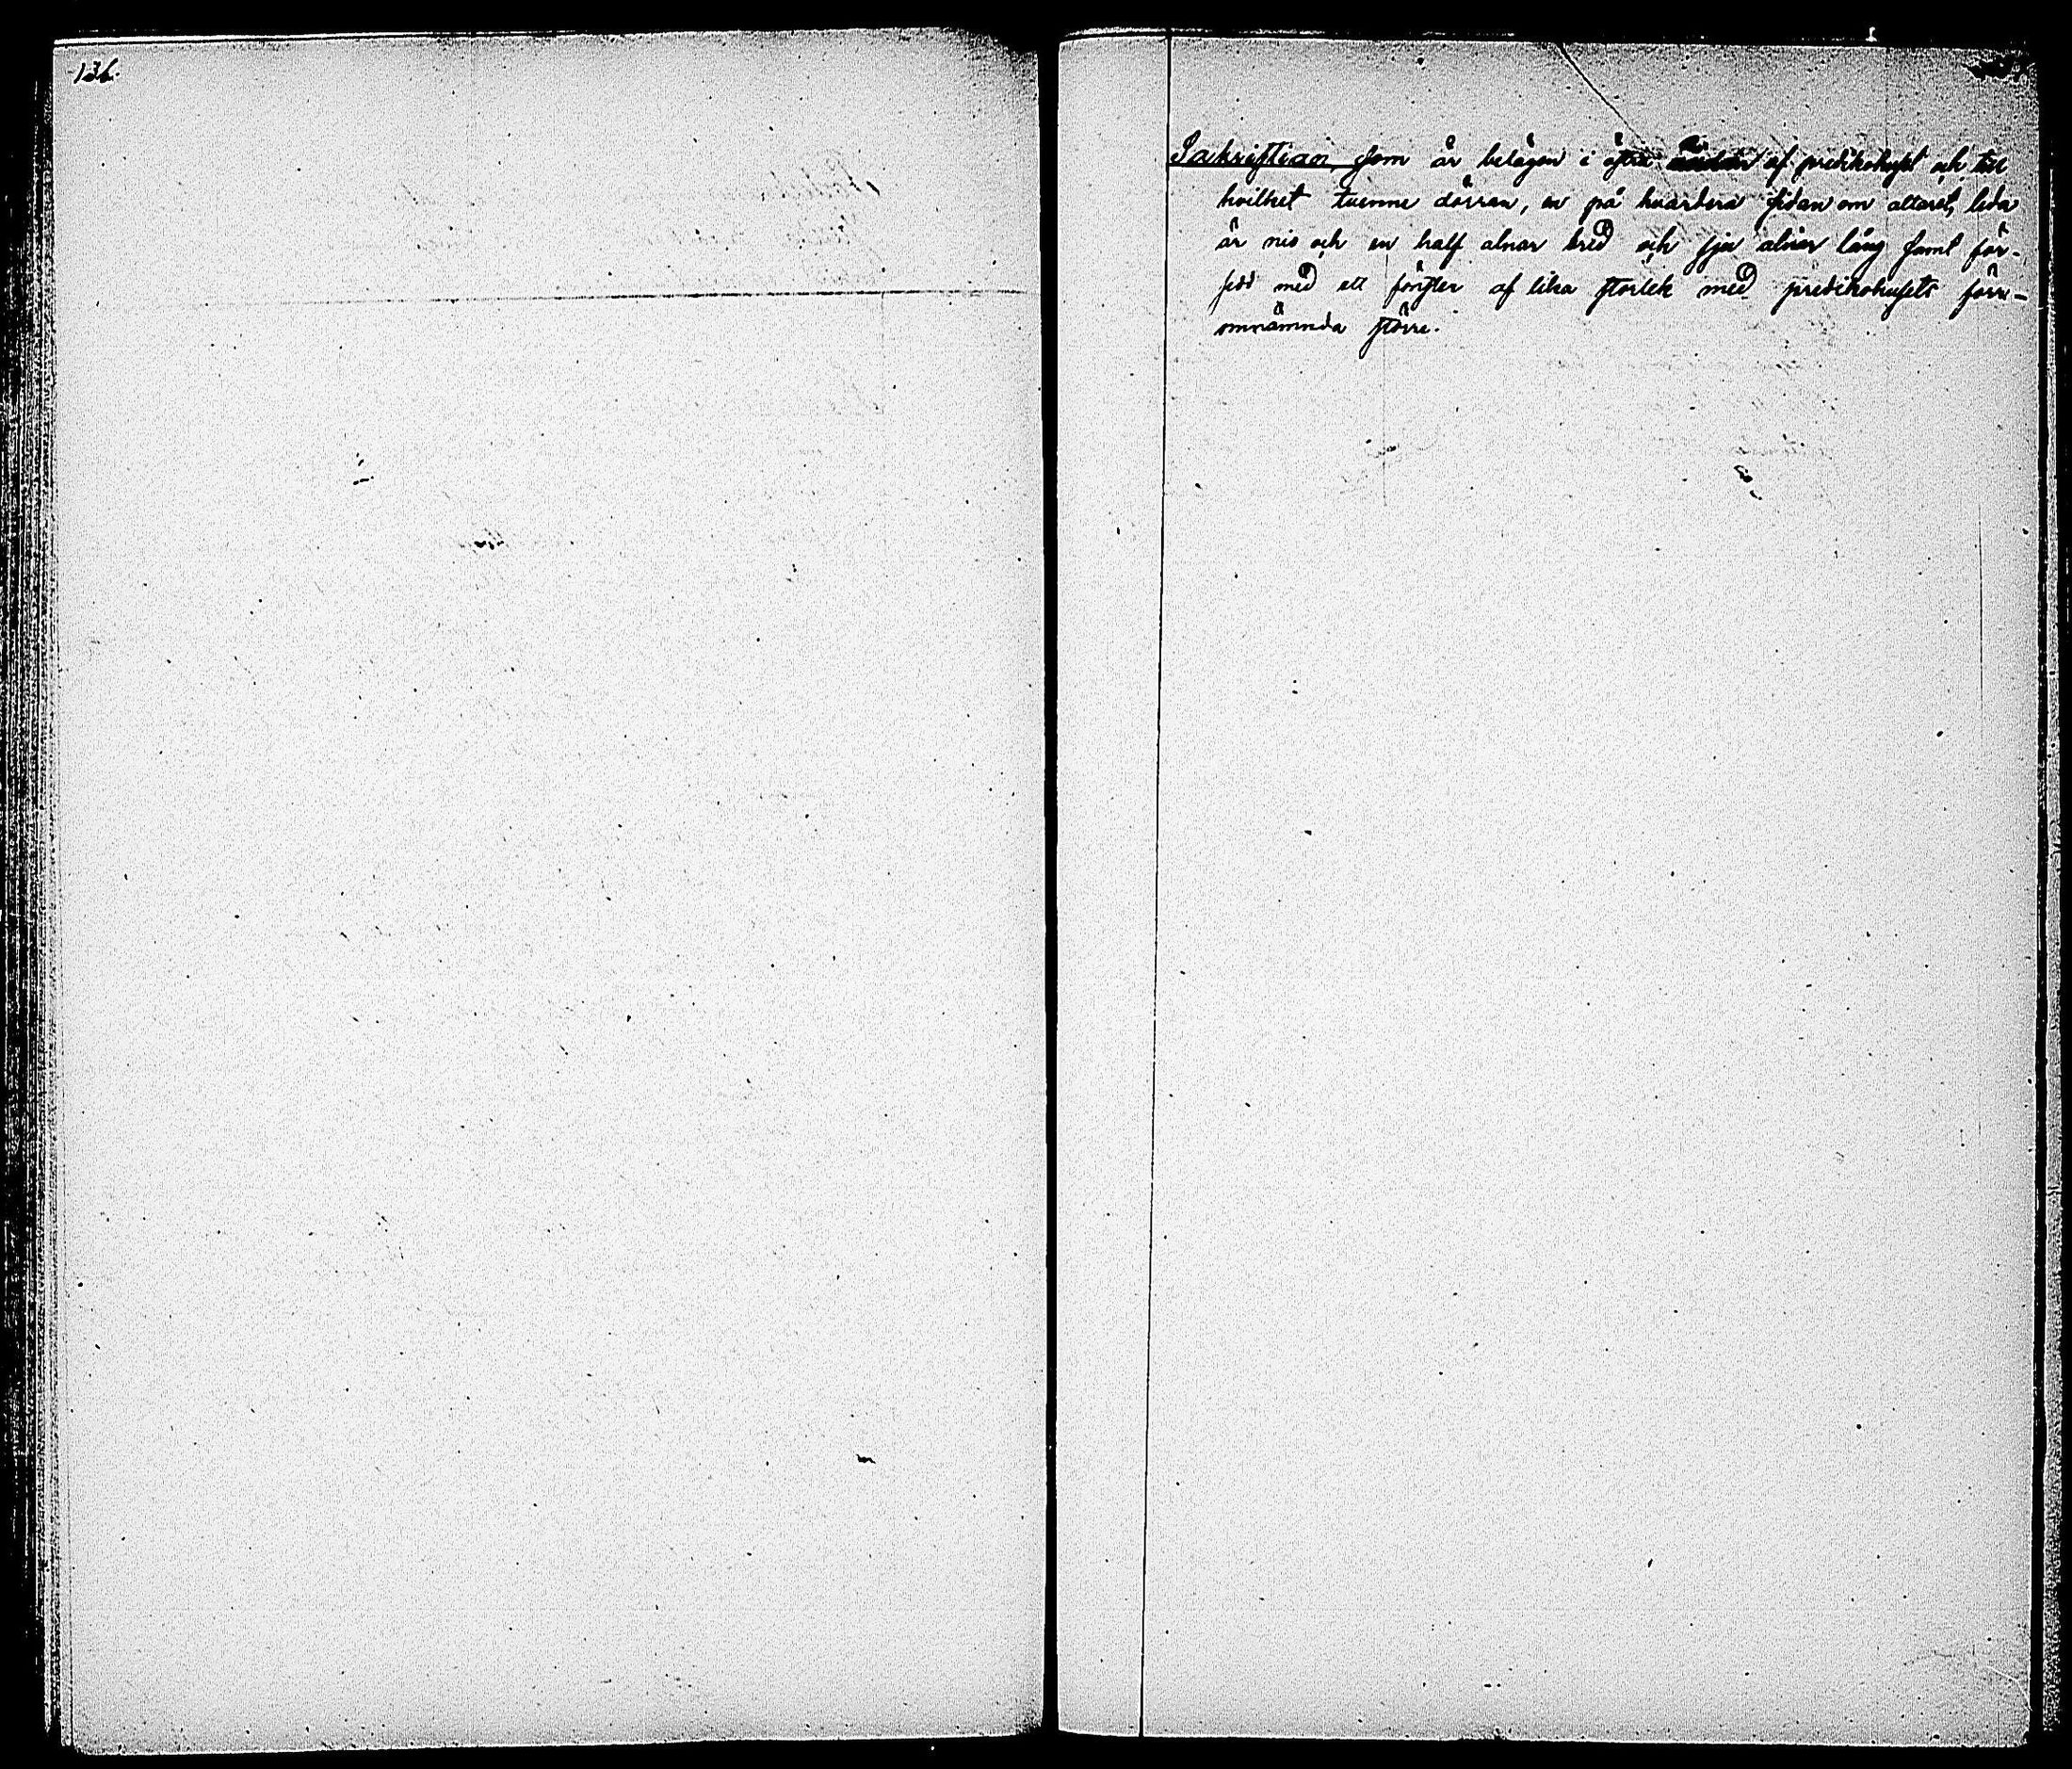 136.
Sakristian, som är belägen i östra ändan af predikohuset och till
hvilket tvenne dörrar, en på hvardera sidan om altaret, leda
är nio och en half alnar bred och sju alnar lång samt för-
sedd med ett fönster af lika storlek med predikohusets förr-
omnämnda större.